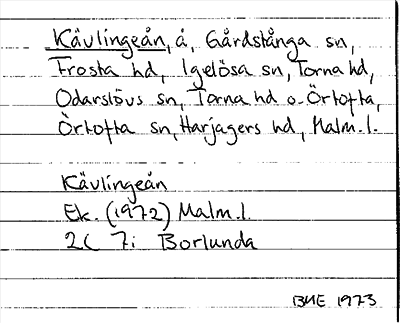 Kävlingeån, å, Gårdstånga sn,
Frosta hd, Igelösa sn, Torna hd,
Odarslövs sn, Torna hd o. Örtofta,
Örtofta sn, Harjagers hd, Malm. l.
Kävlingeån
Ek. (1972) Malm. l.
2C 7i Borlunda
BHE 1973